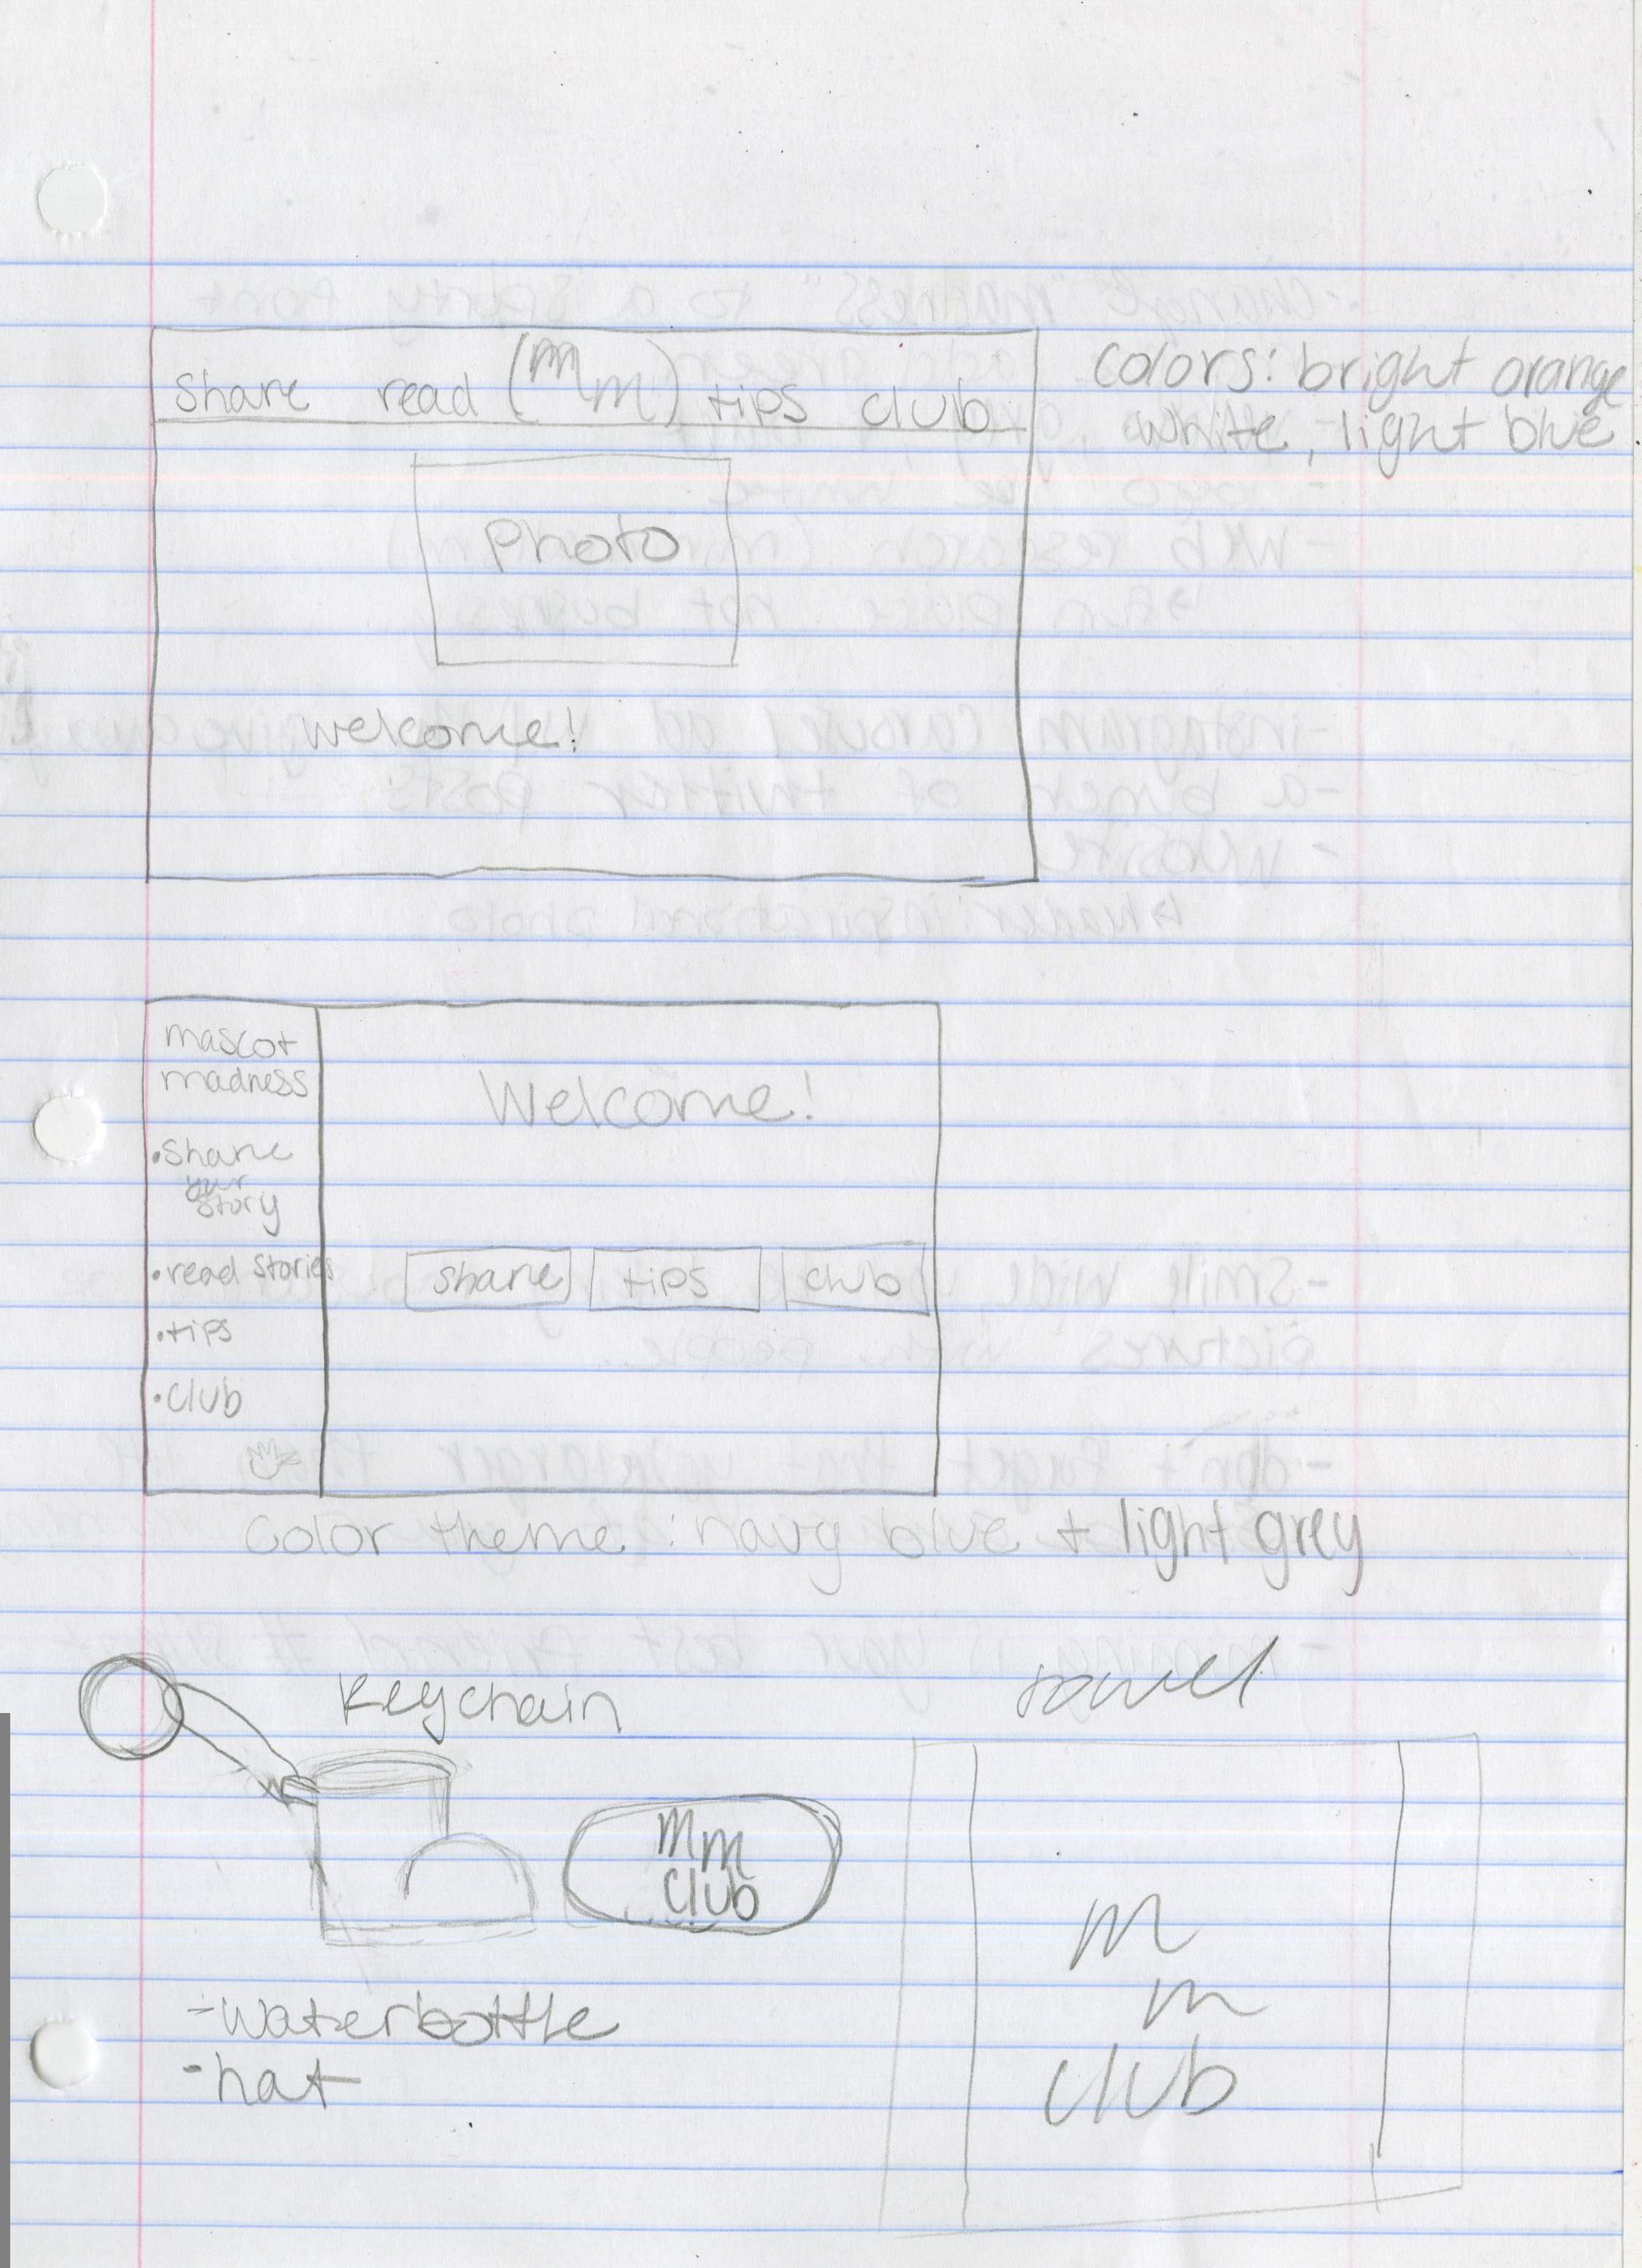 Share read (m m) tips club
colors: bright orange
white, light blue
Photo
welcome!
mascot
madness
Welcome!
•Share
your
story
•read stories
share
tips
club
•tips
•club
Color theme: navy blue + light grey
Keychain
towel
mm
club
m
m
club
-waterbottle
-hat